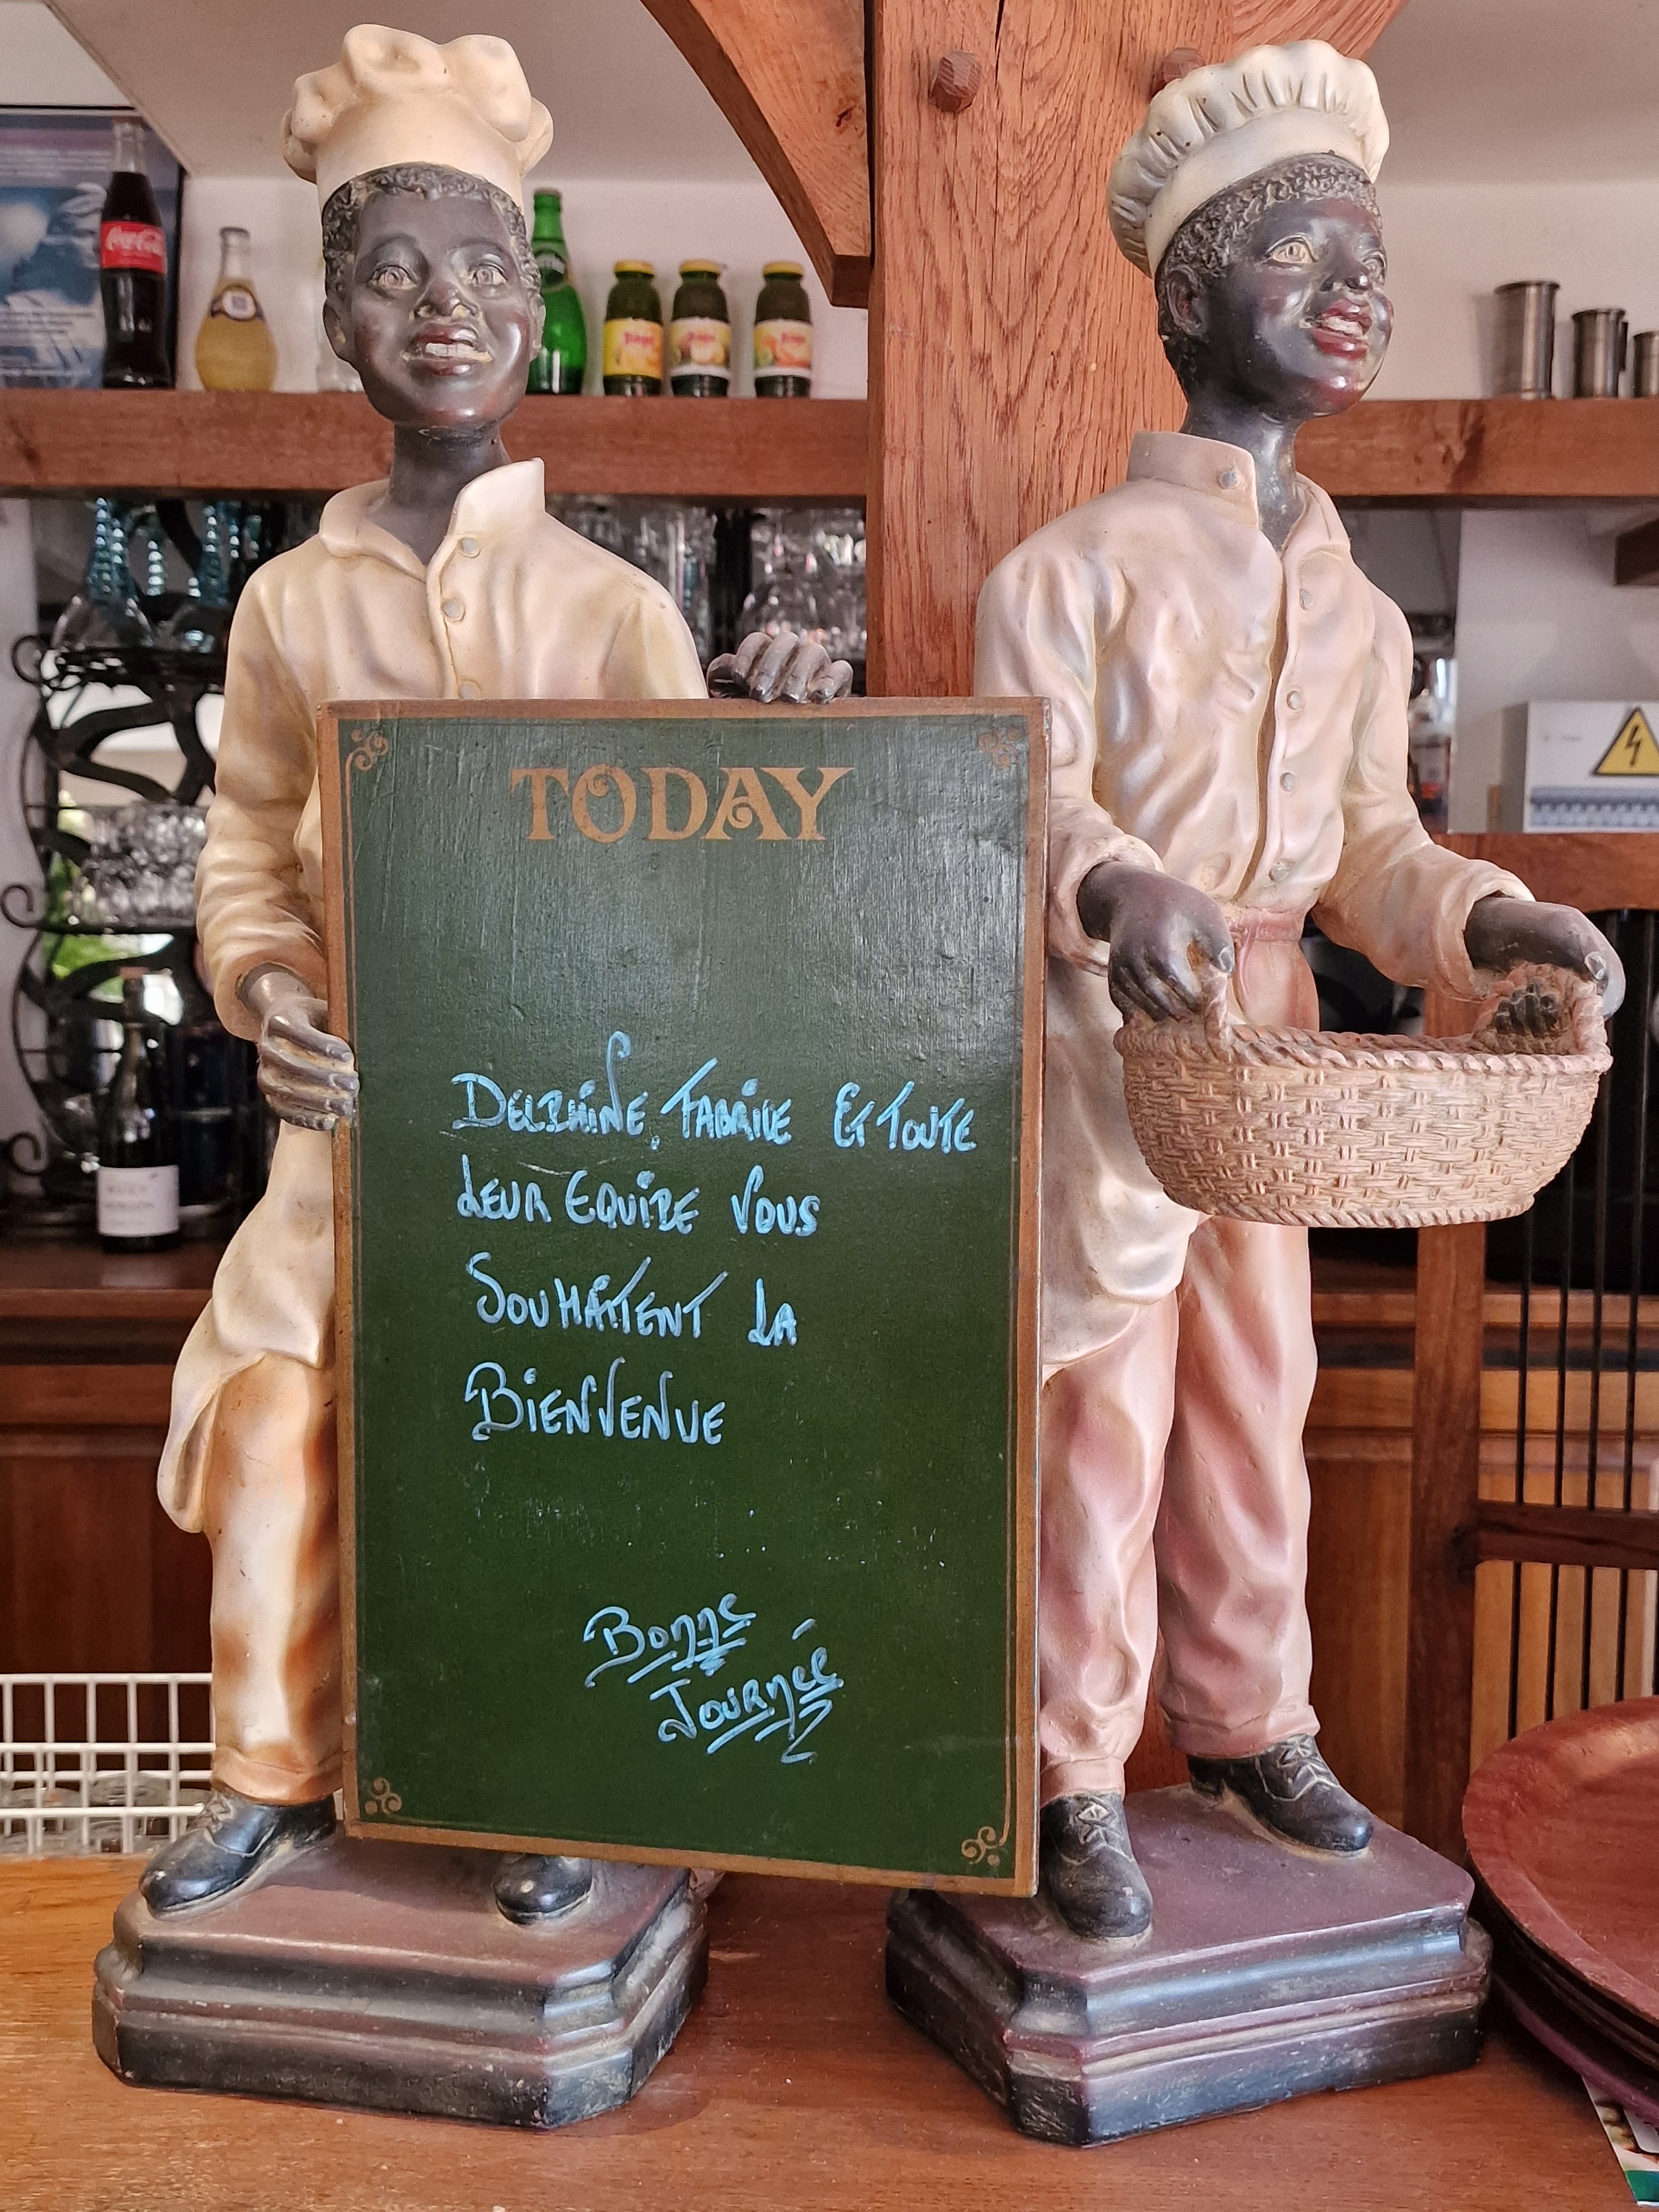 Coca-Cola
TODAY
DELPHINE, FABRICE ET TOUTE
LEUR EQUIPE VOUS
SOUHAITENT LA
BIENVENUE
BONNE
JOURNÉE